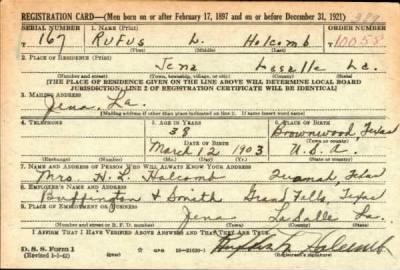 REGISTRATION CARD—(Men born on or after February 17, 1897 and on or before December 31, 1921)
SERIAL NUMBER
1. NAME (Print)
ORDER NUMBER
T 167
RUFUS L. Holcomb
10055
(First) (Middle) (Last)
2. PLACE OF RESIDENCE (Print)
Jena Lasalle La.
(Number and street) (Town, township, village, or city) (County) (State)
[THE PLACE OF RESIDENCE GIVEN ON THE LINE ABOVE WILL DETERMINE LOCAL BOARD
JURISDICTION; LINE 2 OF REGISTRATION CERTIFICATE WILL BE IDENTICAL]
3. MAILING ADDRESS
Jena, La.
[Mailing address if other than place indicated on line 2. If same insert word same]
4. TELEPHONE
5. AGE IN YEARS
6. PLACE OF BIRTH
38
Brownwood Texas
DATE OF BIRTH
(Town or county)
March 12 1903
U. S. A.
(Exchange) (Number)
(Mo.) (Day) (Yr.)
(State or country)
7. NAME AND ADDRESS OF PERSON WHO WILL ALWAYS KNOW YOUR ADDRESS
Mrs. H. L. Holcomb Quanah, Texas
8. EMPLOYER'S NAME AND ADDRESS
Buffington & Smith Grand Falls, Texas
9. PLACE OF EMPLOYMENT OR BUSINESS
Jena LaSalle La.
(Number and street or R. F. D. number) (Town) (County) (State)
I AFFIRM THAT I HAVE VERIFIED ABOVE ANSWERS AND THAT THEY ARE TRUE.
D. S. S. Form 1
(Revised 1-1-42)
GPO 16—21630-1
Holcomb
(Registrant's signature)